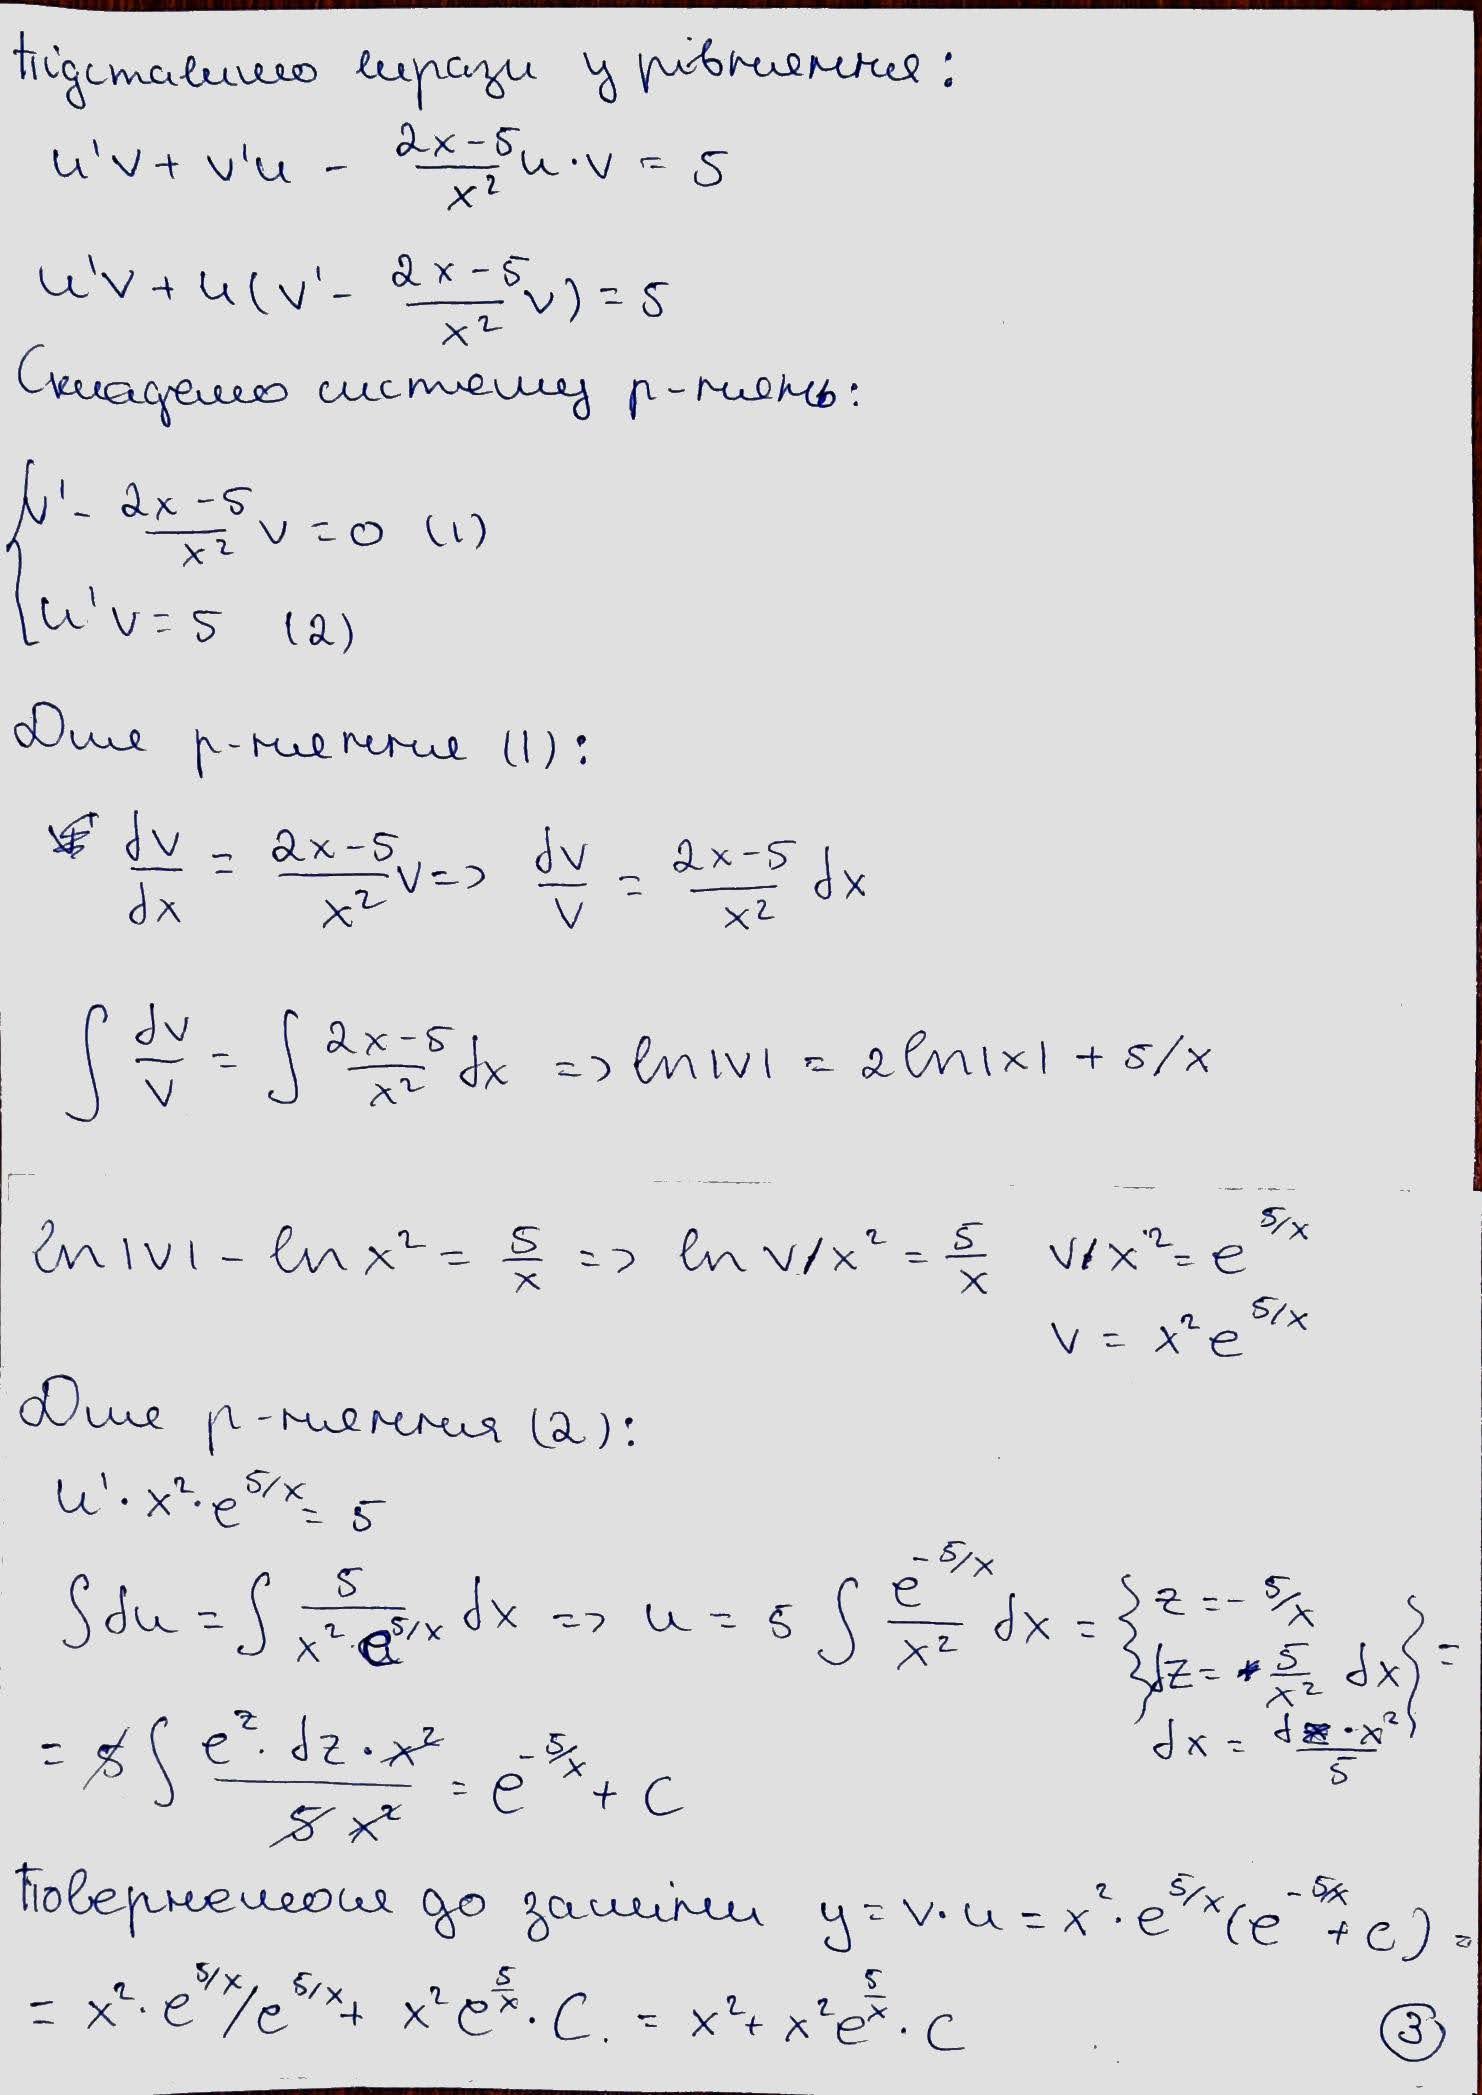 Підставимо вирази у рівняння:
u'v + v'u - \frac{2x-5}{x^2} u·v = 5
u'v + u(v' - \frac{2x-5}{x^2} v) = 5
Складемо систему р-нянь:
v' - \frac{2x-5}{x^2} v = 0 (1)
u'v = 5 (2)
Для р-няння (1):
\frac{dv}{dx} = \frac{2x-5}{x^2} v => \frac{dv}{v} = \frac{2x-5}{x^2} dx
∫ \frac{dv}{v} = ∫ \frac{2x-5}{x^2} dx => ln|v| = 2ln|x| + 5/x
ln|v| - ln x^2 = \frac{5}{x} => ln v/x^2 = \frac{5}{x} v/x^2 = e^{5/x}
v = x^2 e^{5/x}
Для р-няння (2):
u'·x^2·e^{5/x} = 5
∫du = ∫ \frac{5}{x^2·e^{5/x}} dx => u = 5 ∫ \frac{e^{-5/x}}{x^2} dx = { z = -5/x
dz = \frac{5}{x^2} dx } =
dx = \frac{dz·x^2}{5}
= 5 ∫ \frac{e^z·dz·x^2}{5x^2} = e^{-5/x} + C
Повернемося до заміни y = v·u = x^2·e^{5/x}(e^{-5/x} + c) =
= x^2·e^{5/x}/e^{5/x} + x^2 e^{\frac{5}{x}}·C. = x^2 + x^2 e^{\frac{5}{x}}·C
3